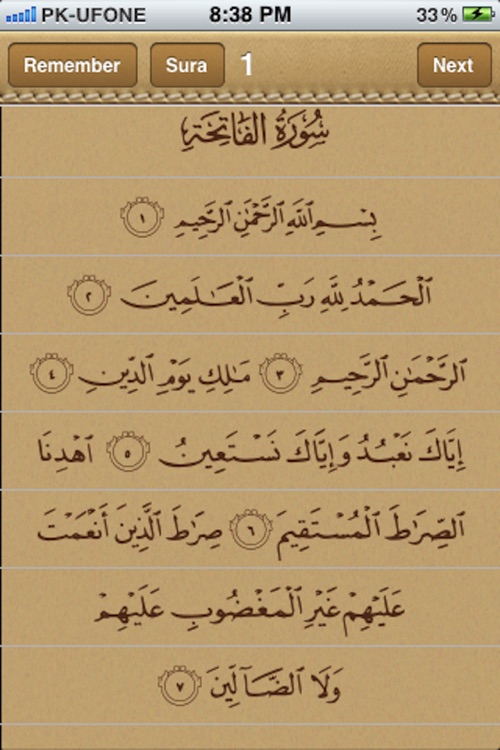 PK-UFONE 8:38 PM 33%
Remember Sura 1 Next
سُورَةُ الفَاتِحَةِ
بِسْمِ ٱللَّهِ ٱلرَّحْمَٰنِ ٱلرَّحِيمِ ١
ٱلْحَمْدُ لِلَّهِ رَبِّ ٱلْعَٰلَمِينَ ٢
ٱلرَّحْمَٰنِ ٱلرَّحِيمِ ٣ مَٰلِكِ يَوْمِ ٱلدِّينِ ٤
إِيَّاكَ نَعْبُدُ وَإِيَّاكَ نَسْتَعِينُ ٥ ٱهْدِنَا
ٱلصِّرَٰطَ ٱلْمُسْتَقِيمَ ٦ صِرَٰطَ ٱلَّذِينَ أَنْعَمْتَ
عَلَيْهِمْ غَيْرِ ٱلْمَغْضُوبِ عَلَيْهِمْ
وَلَا ٱلضَّآلِّينَ ٧